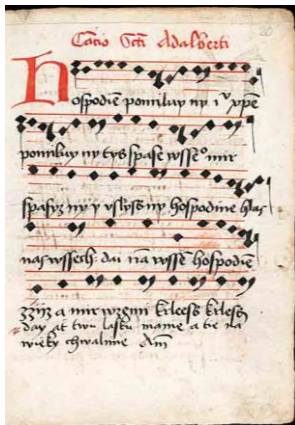 Cãcio Scti Adalberti
Hospodiē pomiluy ny iᵘ xp̄e
pomiluy ny tys spase wsseº mir
spasyz ny y uslyss ny hospodine hlas
nas wssech dai nā wssē hospodiē
zzizz a mir wzemi krleess krless
day at twu lasku mame a tie na
wieky chwalme Am̄